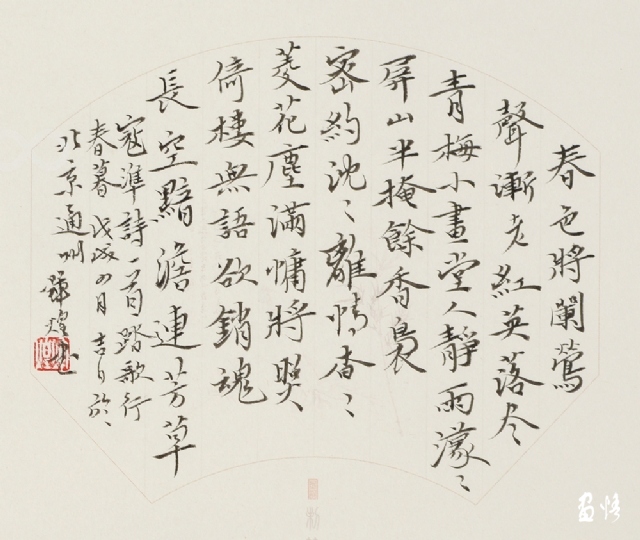 春色將闌鶯
聲漸老紅英落尽
青梅小畫堂人靜雨濛〻
屏山半掩餘香裊
密約沈〻離情杳〻
菱花塵滿慵將照
倚樓無語欲銷魂
長空黯澹連芳草
寇準詩一首踏歌行
春暮戊戌四月吉日於
北京通州